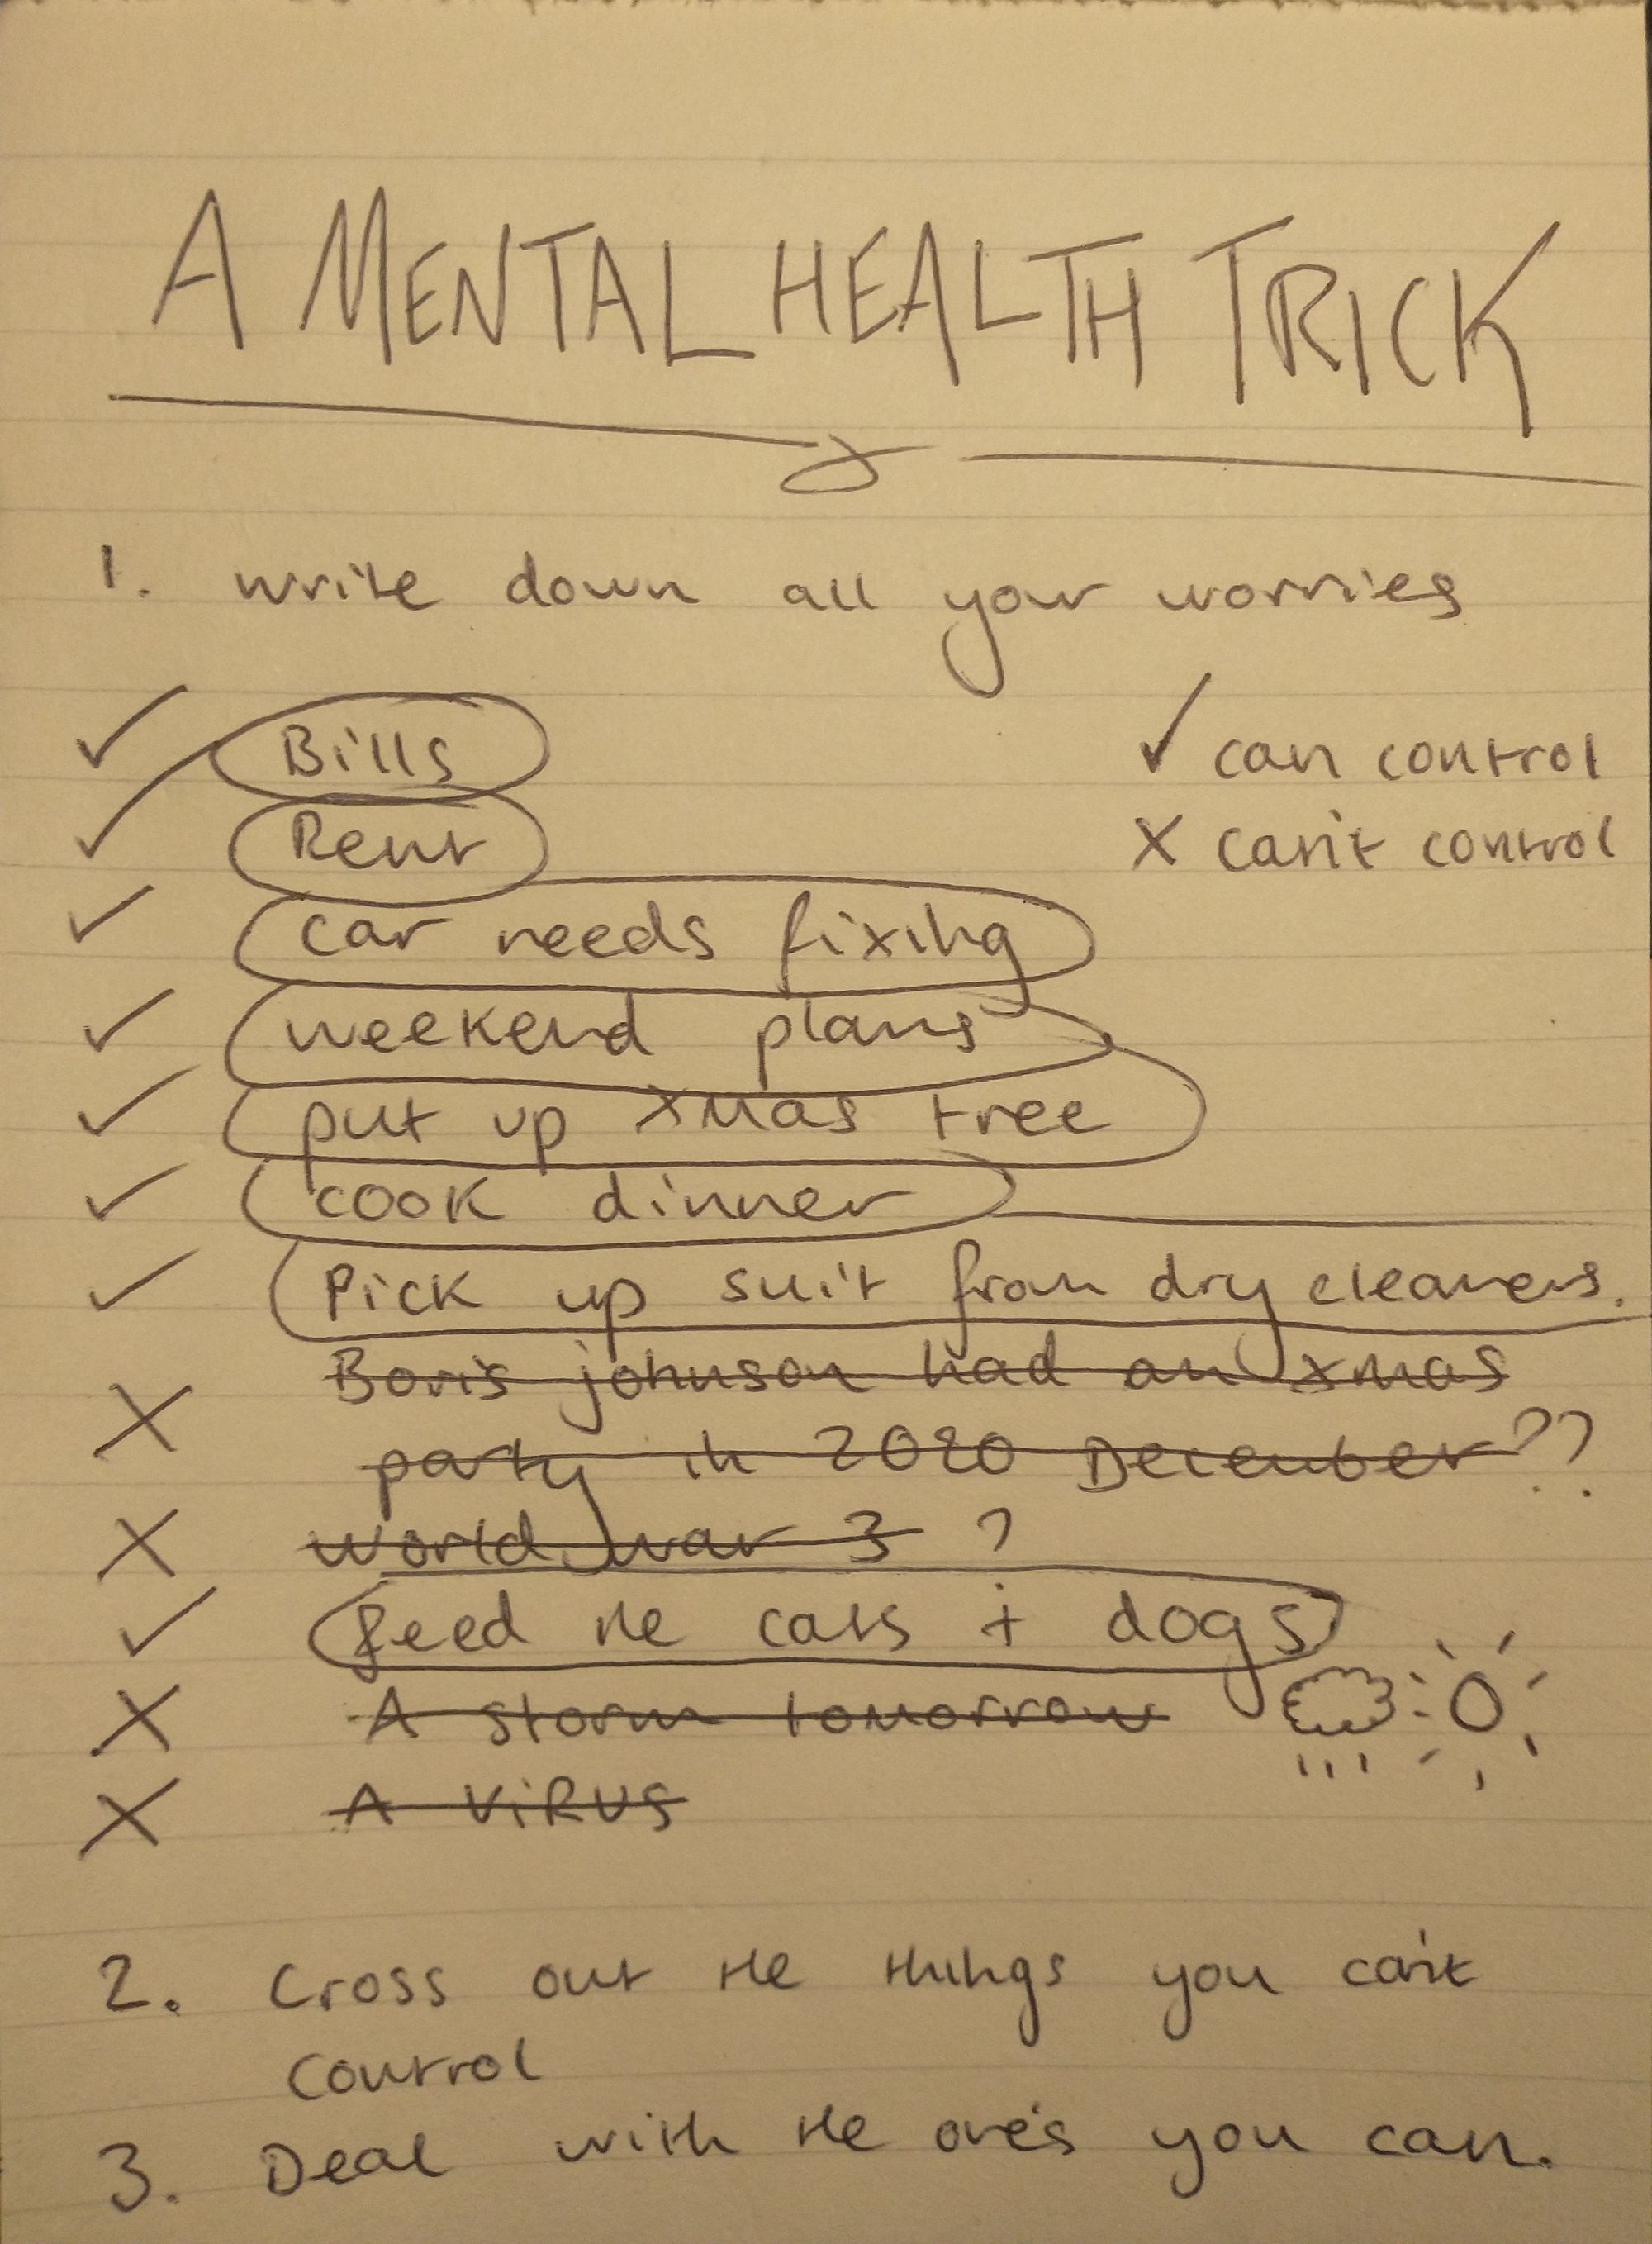 A MENTAL HEALTH TRICK
1. write down all your worries
✓ Bills
✓ can control
✓ Rent
X can't control
✓ car needs fixing
✓ weekend plans
✓ put up xmas tree
✓ cook dinner
✓ Pick up suit from dry cleaners.
X Boris johnson had an xmas
party in 2020 December??
X world war 3 ?
✓ feed the cats + dogs
X A storm tomorrow
X A ViRUS
2. Cross out the things you can't
control
3. Deal with the one's you can.